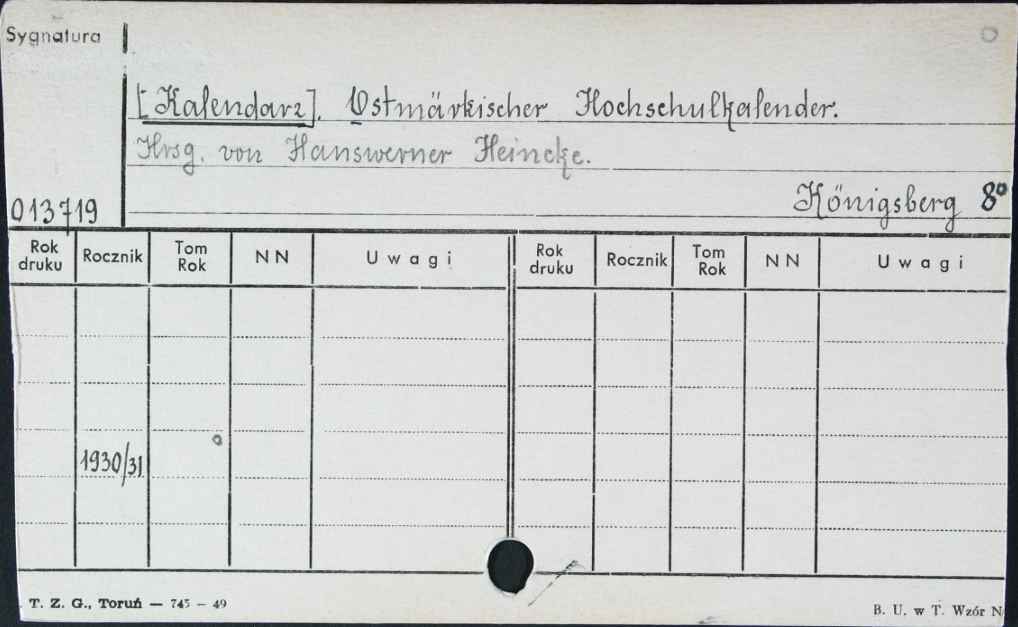 Sygnatura
[Kalendarz]. Ostmärkischer Hochschulkalender.
Hrsg. von Hanswerner Heincke.
Königsberg 8°
013719
Rok druku Rocznik Tom Rok NN Uwagi Rok druku Rocznik Tom Rok NN Uwagi
1930/31
T. Z. G., Toruń — 745 — 49
B. U. w T. Wzór